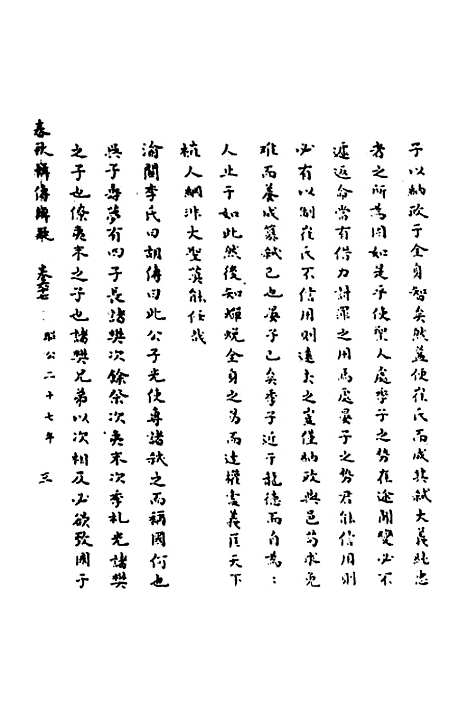 子以納政于全身智矣然盖使崔氏而成其弑大義純忠
者之所為固如是乎使聖人處季子之勢在途聞變必不
遽返命當有借力討罪之用焉處晏子之勢君能信用則
必有以制崔氏不信用則遠去之豈僅納政與邑茍求免
难而養成篡弑已也晏子已矣季子近于龍德而自為
人止于如此然後知雖蛻全身之易而達權變義匡天下
植人綱非大聖莫能任哉
渝關李氏曰胡傳曰此公子光使專諸弑之而稱國何也
吳子壽夢有四子長諸樊次餘祭次夷末次季札光諸樊
之子也僚夷末之子也諸樊兄弟以次相及必欲致國于
春秋輯傳辨疑 卷六七 昭公二十七年 三